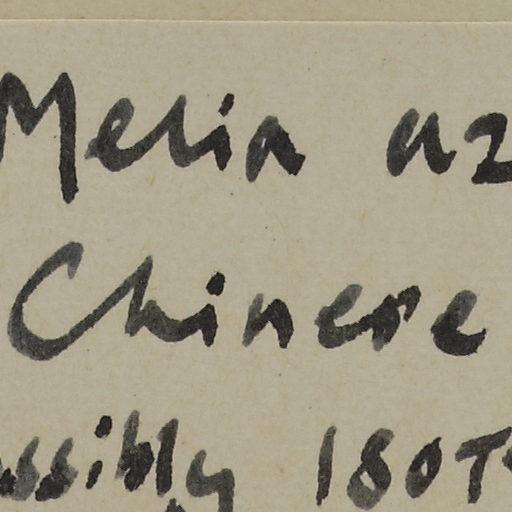 Melia az
Chinese
ssibly ISOT